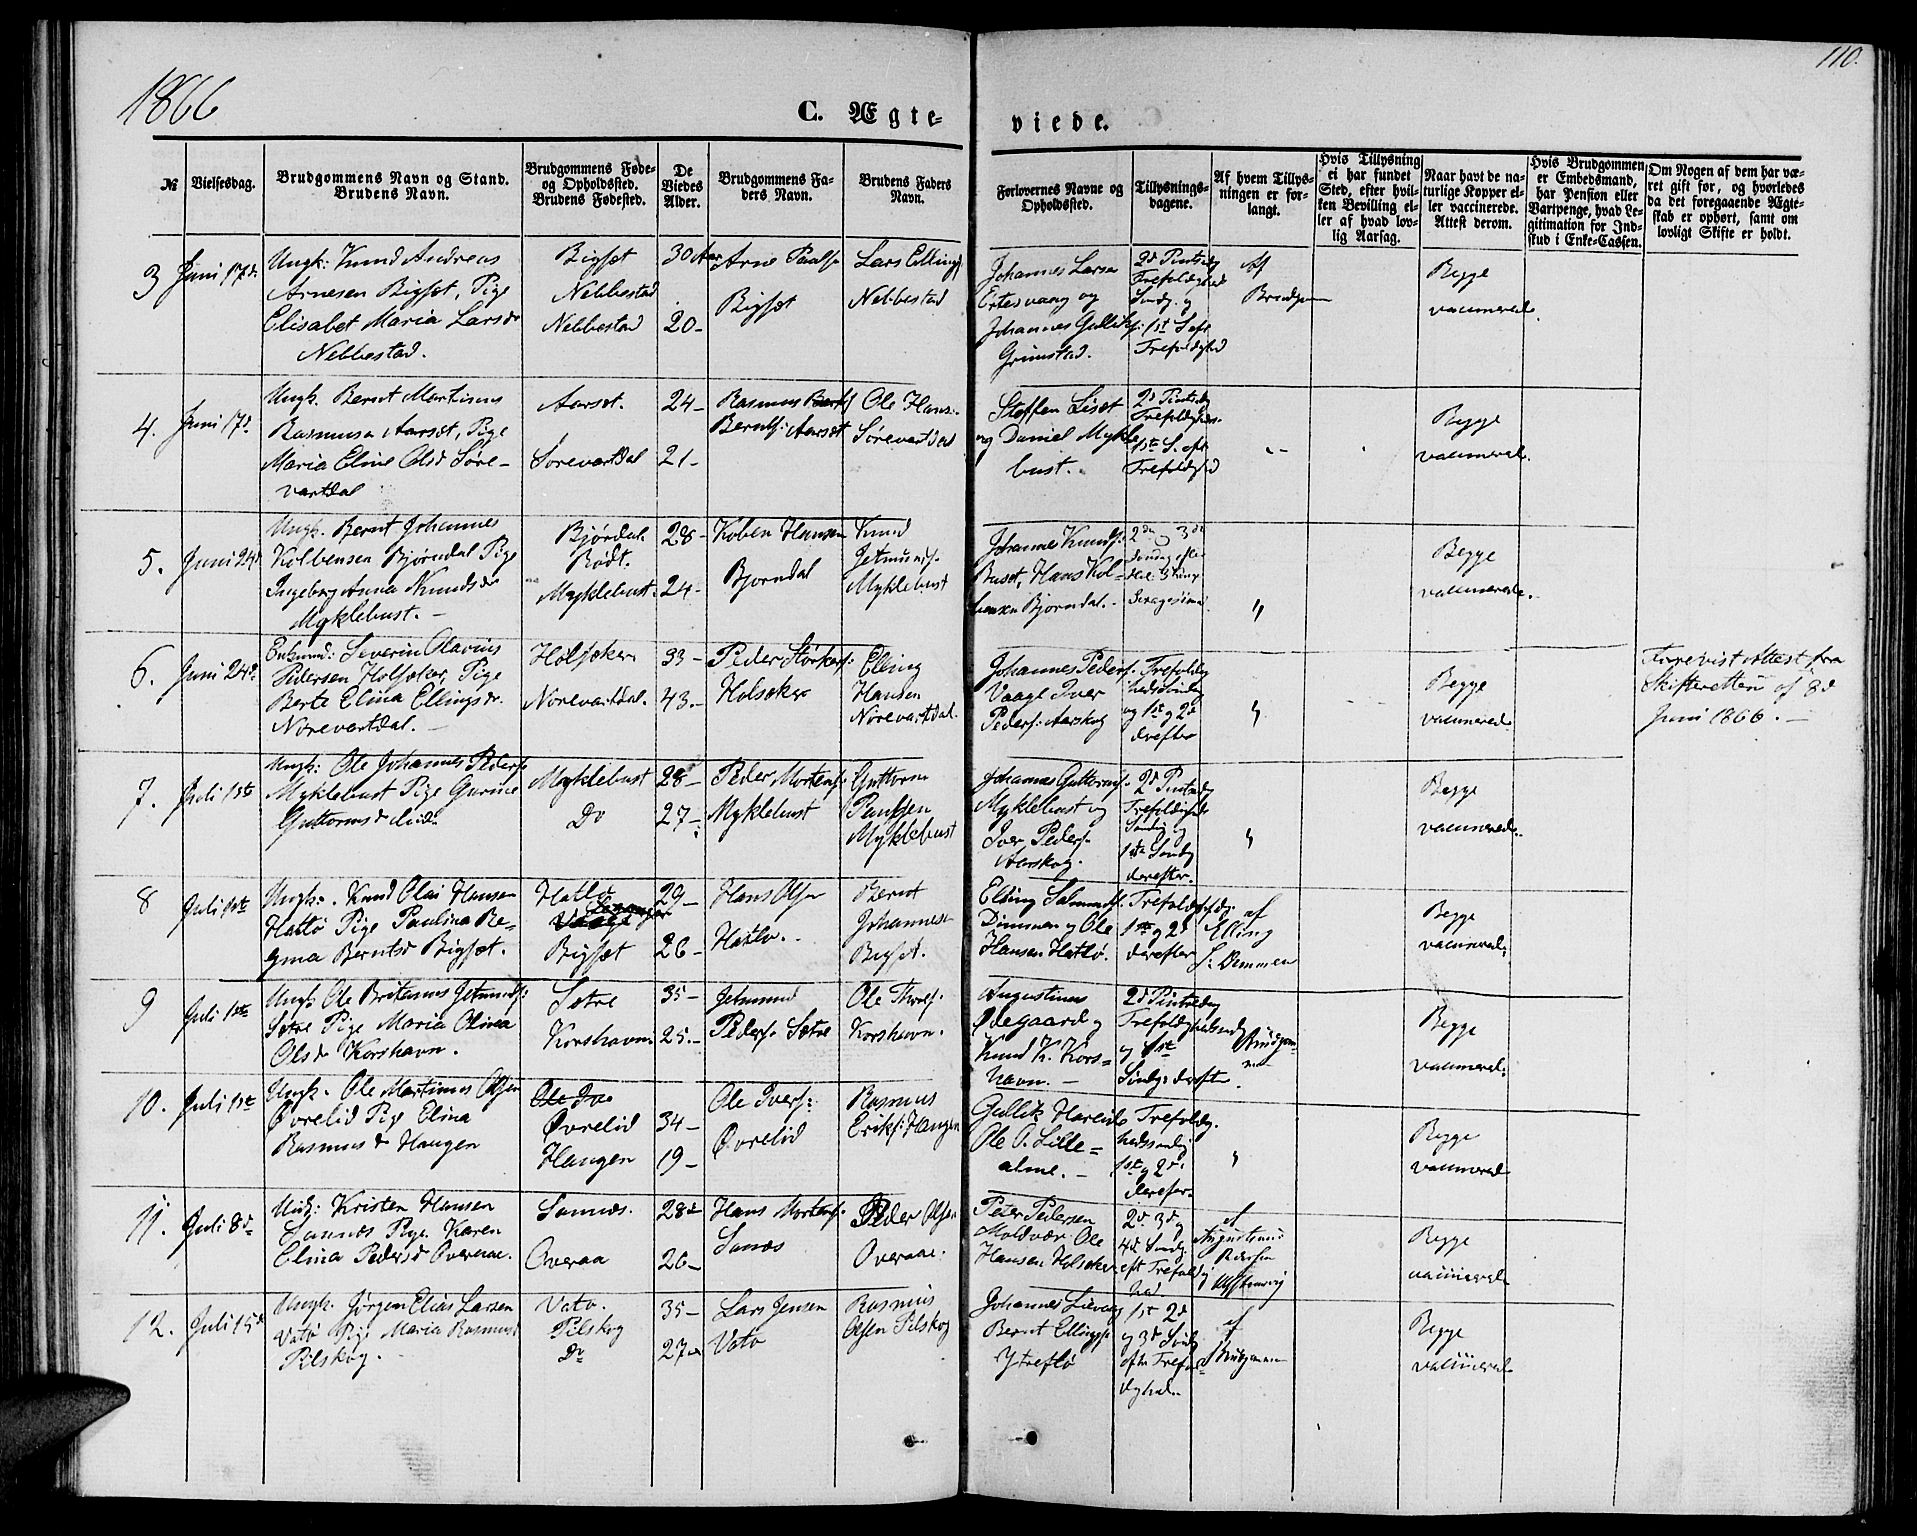 1866
110.
C. Ægte-
viede.
№
Vielsesdag.
Brudgommens Navn og Stand.
Brudens Navn.
Brudgommens Føde-
og Opholdssted.
Brudens Fødested.
De
Viedes
Alder.
Brudgommens Fa-
ders Navn.
Brudens Faders
Navn.
Forlovernes Navne og
Opholdssted.
Tillysnings-
dagene.
Af hvem Tillys-
ningen er for-
langt.
Hvis Tillysning
ei har fundet
Sted, efter hvil-
ken Bevilling el-
ler af hvad lov-
lig Aarsag.
Naar havt de na-
turlige Kopper el-
ler vaccinerede.
Attest derom.
Hvis Brudgommen
er Embedsmand,
har Pension eller
Vartpenge, hvad Le-
gitimation for Ind-
skud i Enke-Cassen.
Om Nogen af dem har væ-
ret gift før, og hvorledes
da det foregaaende Ægte-
skab er ophørt, samt om
lovligt Skifte er holdt.
3
Juni 17d.
Ungk: Knud Andreas
Arnesen Bigset, Pige
Elisabet Maria Larsdr
Nebbestad.
Bigset
Nebbestad
Nebbestad
30 Aar
20-
Arne Paulse
Bigset
Lars Ellings
Nebbestad
Johannes Larsen
Ertesvaag og
Johannes Gulliks:
Grimstad.
2d Pintsedg
Trefoldighed
Søndg. og
1st S. eft
Trefoldighed
Af
Brudgom
Begge
vaccinerede.
4.
Juni 17d.
Ungk. Bernt Martinus
Rasmusen Aarset, Pige
Maria Eline Olsd Søre-
vartdal
Aarset.
Sørevartdal
24-
21-
Rasmus
Bernts: Aarset
Ole Hans.
Sørevartdal
Steffen Liset
og Daniel Mykle
bust.
2d Pintsdg
Trefoldighds.
1ste S. eft
Trefoldighed
Begge
vaccinered.
5.
Juni 24d.
Ungk. Bernt Johannes
Kolbensen Bjørndal Pige
Ingeborg Anna Knudsdr
Myklebust. -
Bjørdal
Myklebust.
28-
24-
Koben Hansen
Bjørndal
Knud
Jetmunds.
Myklebust
Johannes Knuds.
Buset, Hans Kol-
bensen Bjørndal. -
2den 3de
"
Begge
vaccinerede.
6.
Juni 24d.
Enkemd: Severin Olavius
Pidersen Holseker, Pige
Berte Elina Ellingsdr.
Norevartdal. -
Holseker
Norevartdal.
33-
43.-
Peder Størkers:
Holseker
Elling
Hansen
Norevartdal.
Johannes Peders:
Vaage Iver
Peders: Aarskog
Trefoldig
hedssøndag
og 1st g 2d
derefter
"
Begge
vaccinered.
Forevist Attest fra
Skifteretten af 8d
Juni 1866. -
7.
Juli 1ste
Ungk: Ole Johannes Peders.
Myklebust Pige Gurine
Guttormsd ibid.
Myklebust
Do
28-
27-
Peder Mortens:
Myklebust
Guttorm
Paulsen
Myklebust
Johannes Guttorms.
Myklebust og
Iver Peders.
Aarskog.
2d Pintsdg
Trefoldighed
Søndg og
1ste Søndg
derefter.
"
Begge
vaccinered.
8
Juli 1ste
Ungk. Knud Olai Hansen
Hatlø Pige Paulina Re-
gina Berntsd Bigset.
Hatlø
Vaage
Bigset
29-
26-
Hans Olsen
Hatlø.
Bernt
Johannes
Bigset.
Elling Salomons.
Dimmen og Ole
Hansen Hatlø.
Trefoldighdg
1ste g 2d
derefter
af
Elling
S: Dimmen
Begge
vaccinered.
9
Juli 1ste
Ungk: Ole Britanus Jetmunds:
Sætre Pige Maria Olina
Olsdr Korshavn.
Sætre
Korshavn
35-
25.-
Jetmund
Peders. Sætre
Ole Thores.
Korshavn.
Augustinus
Ødegaard g
Knud K. Kors-
havn. -
2d Pintsdg
Trefoldighedsøndg
g 1st
Søndg. derefter
Brudgom-
men
Begge
vaccinered.
10.
Juli 1st
Ungk. Ole Martinus Olsen
Øvrelid Pige Elina
Rasmusdr Haugen
Øvrelid
Haugen
34-
19-
Ole Ivers:
Øvrelid
Rasmus
Eriks: Haugen
Gullik Hareide
Ole O. Lille-
alme. -
Trefoldig.
hedssøndg:
1st g 2d.
derefter.
"
Begge
vaccinered
11.
Juli 8d
Ungk: Kristen Hansen
Sannæs Pige Karen
Elina Pedersd Overaae.
Sannæs.
Overaa
28de
26-
Hans Mortens.
Sannæs
Peder Olsen
Overaae.
Peter Pedersen
Moldvær Ole
Hansen Holseker.
2d. 3d g
4d Søndg.
eft Trefoldig
hed.
af
Augustinus
Begge
vaccinered
12.
Juli 15d
Ungk. Jørgen Elias Larsen
Vatø Pige Maria Rasmusd
Pilskog.
Vatø.
Pilskog
Do
35-
27-
Lars Jensen
Vatø
Rasmus
Olsen Pilskog
Johannes Lievaag
Bernt Ellings.
Ytreflø
1st 2d
g 3d Søndg
efter Trefol-
dighed.
af
Brudgommen
Begge
vaccinered